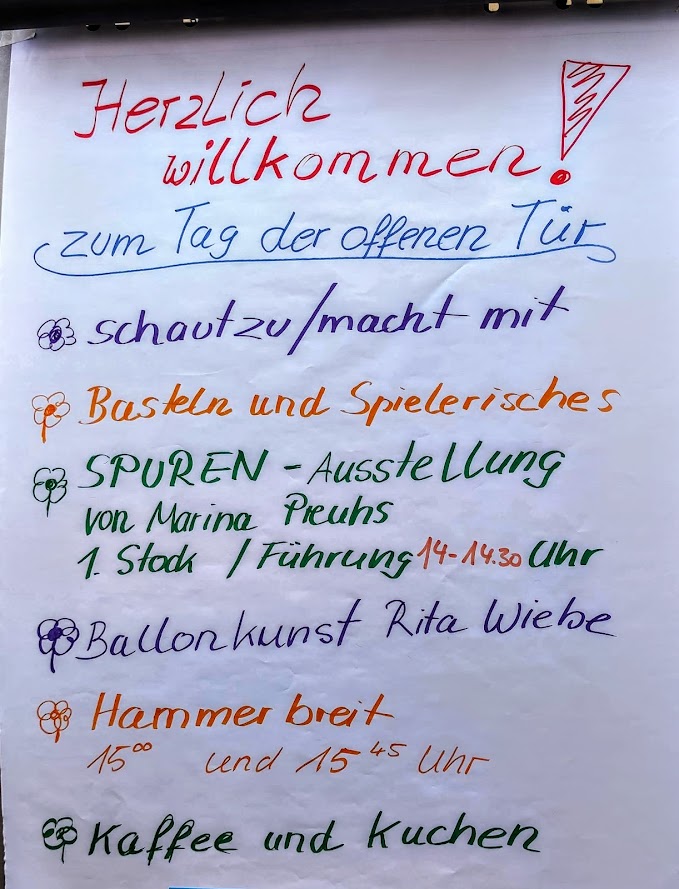 Herzlich
willkommen!
zum Tag der offenen Tür
schaut zu/macht mit
Basteln und Spielerisches
SPUREN - Ausstellung
von Marina Preuhs
1. Stock / Führung 14-14.30 Uhr
Ballonkunst Rita Wiebe
Hammer breit
15⁰⁰ und 15⁴⁵ Uhr
Kaffee und Kuchen